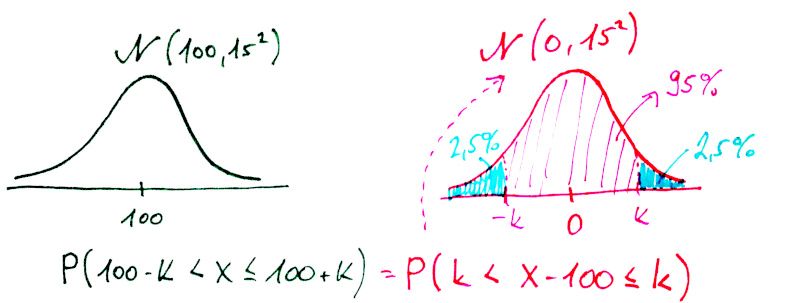 𝒩(100,15²)
𝒩(0,15²)
95%
2,5%
2,5%
100
-k
0
k
P(100-k < X ≤ 100+k) = P(k < X-100 ≤ k)